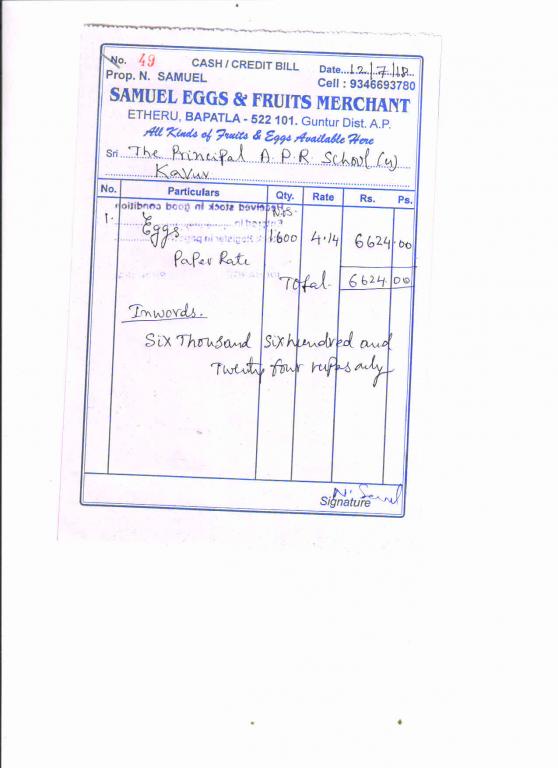 No. 49 CASH / CREDIT BILL Date...12/7/18
Prop. N. SAMUEL Cell : 9346693780
SAMUEL EGGS & FRUITS MERCHANT
ETHERU, BAPATLA - 522 101. Guntur Dist. A.P.
All Kinds of Fruits & Eggs Available Here
Sri The Principal A.P.R. School (U)
Kavur
No. Particulars Qty. Rate Rs. Ps.
Received stock in good condition
Nos.
1. Eggs 1600 4.14 6624.00
Paper Rate
Total. 6624.00
Inwords.
Six Thousand Six hundred and
Twenty four rupes only
N. Samuel
Signature